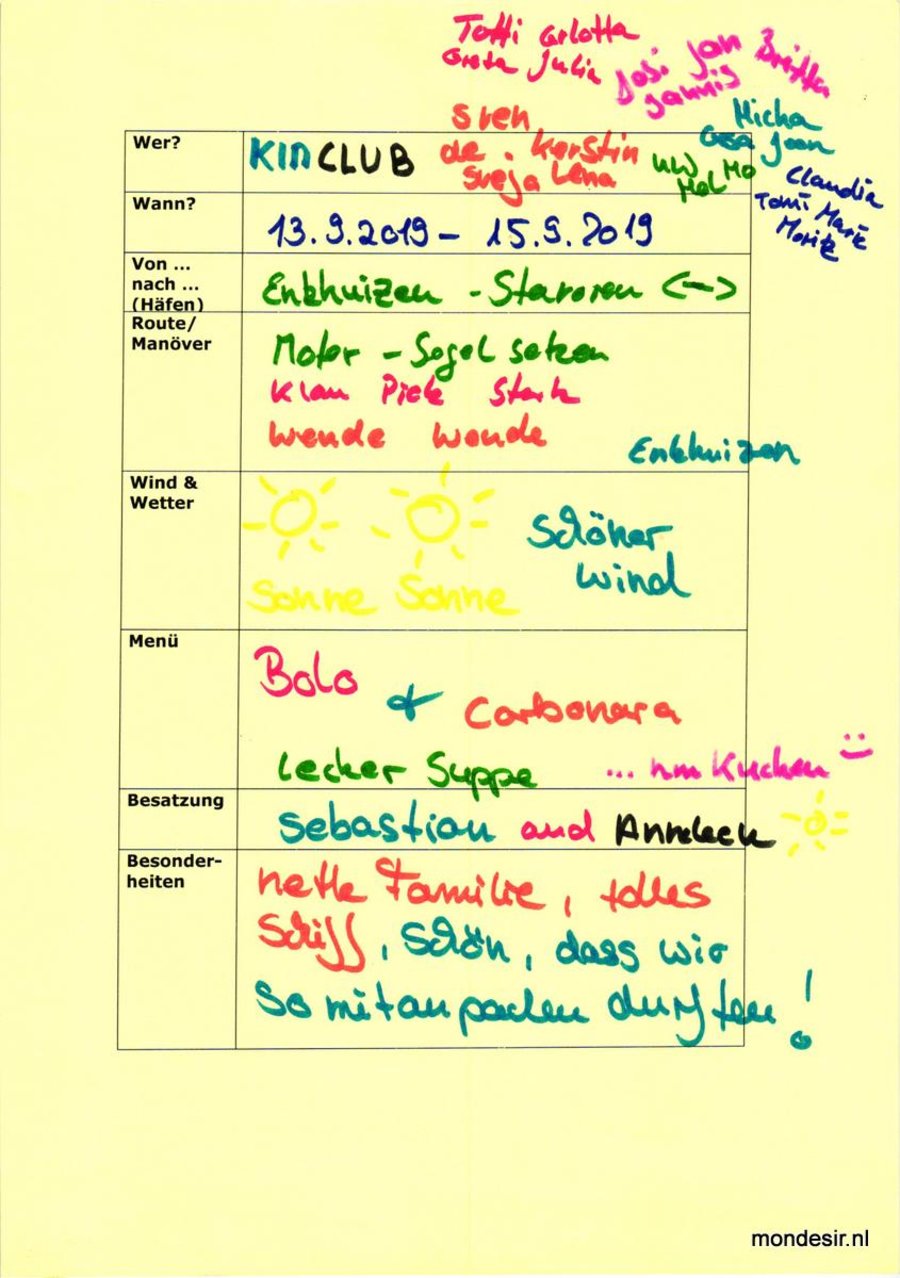 Totti Carlotta
Greta Julia
Josi Jan Britta
Jannis
Micha
Joon
Sven
de . Kerstin
Sveja Lena
UW Mo
Mel
Claudia
Tomi Marit
Moritz
Wer?
KINCLUB
Wann?
13.9.2019 - 15.9.2019
Von ...
nach ...
(Häfen)
Enkhuizen - Stavoren <-->
Route/
Manöver
Motor - Segel setzen
Klau Piek Stark
Wende Wende
Enkhuizen
Wind &
Wetter
Sonne Sonne
Schöner
Wind
Menü
Bolo
& Carbonara
Lecker Suppe ... hm Kuchen
Besatzung
Sebastian and
Besonder-
heiten
nette Familie, tolles
Schiff, Schön, dass wir
so mitanpacken durften!
mondesir.nl